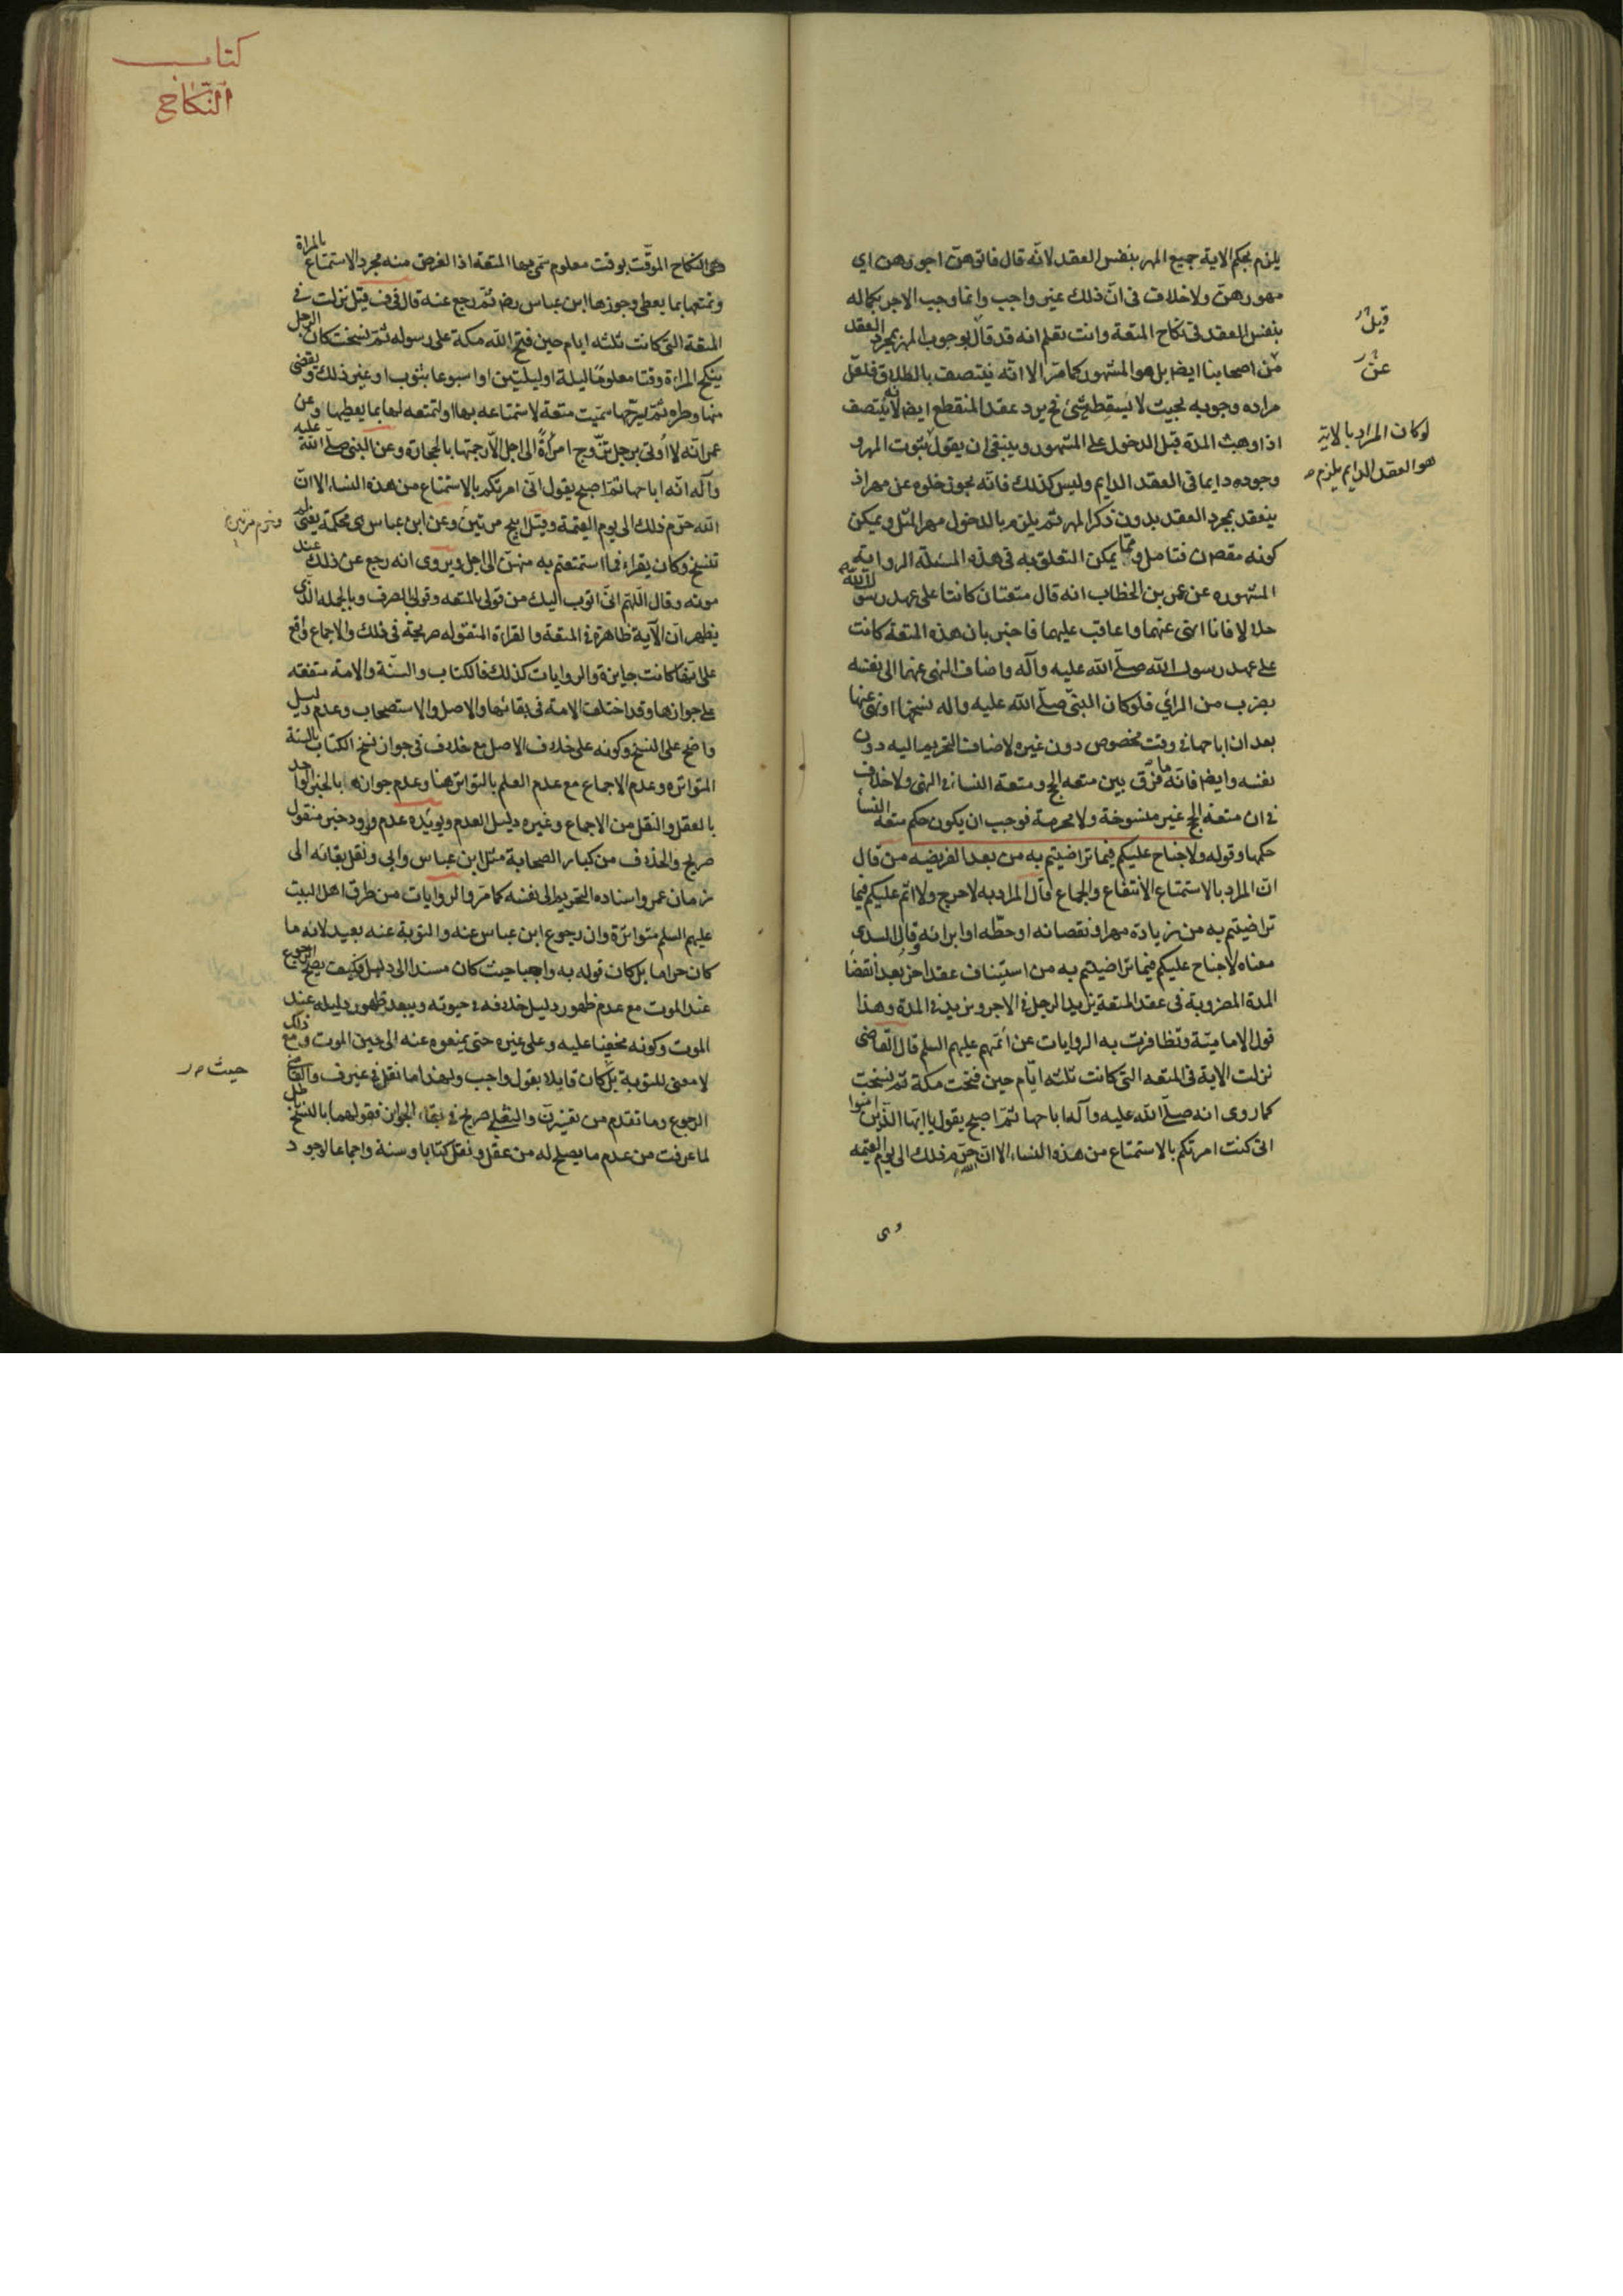 يلزم بحكم الاية جميع المهر بنفس العقد لانّه قال فاتوهنّ اجورهن اي
مهورهنّ ولا خلاف فى انّ ذلك غير واجب وانما وجب الاجر بكماله
بنفس العقد فى نكاح المتعة وانت تعلم انه قد قال بوجوب المهر بمجرد العقد
من اصحابنا ايضا بل هو المشهور كما مرّ الا انّه ينتصف بالطلاق فلعلّ
مراده وجوبه بحيث لا يسقطه شئ نعم يرد عقد المنقطع ايضا لانه يتصف
اذا وهبت المدة قبل الدخول على المشهور وينبغى ان يقول بثبوت المهر و
وجوده دايما فى العقد الدايم وليس كذلك فانّه يجوز خلوه عن مهر اذ
ينعقد بمجرد العقد بدون ذكر المهر ثم يلزم بالدخول مهر المثل ويمكن
كونه مقصده فتامل ومما يمكن التعلق به فى هذه المسئلة الرواية
المشهوره عن عمر بن الخطاب انه قال متعتان كانتا على عهد رسول الله
حلالا فانا انهى عنهما واعاقب عليهما فاخبر بان هذه المتعة كانت
على عهد رسول الله صلّى الله عليه وآله واضاف النهى عنهما الى نفسه
بضرب من الرأي فلو كان النبىّ صلّى الله عليه واله نسخها او نهى عنها
بعد ان اباحها فى وقت مخصوص دون غيره لاضاف التحريم اليه دون
نفسه وايضا فانّه ما فرّق بين متعه الحج ومتعة النساء فى النهى ولا خلاف
فى ان متعة الحج غير منسوخة ولا محرمة فوجب ان يكون حكم متعه النسأ
حكمها وقوله ولا جناح عليكم فيما تراضيتم به من بعد الفريضه من قال
انّ المراد بالاستمتاع الانتفاع والجماع قال المراد به لا حرج ولا اثم عليكم فيما
تراضيتم به من زيادة مهر او نقصانه او حطّه او ابرائه وقال السدى
معناه لا جناح عليكم فيما تراضيتم به من استيناف عقد اخر بعد انقضا
المدة المضروبة فى عقد المتعة يزيدها الرجل فى الاجر وتزيده فى المدة وهذا
قول الامامية وتظافرت به الروايات عن ائمتهم عليهم السلم قال القاضى
نزلت الاية فى المتعه التى كانت ثلثه ايّام حين فتحت مكة ثم نسخت
كما روى انه صلّى الله عليه وآله اباحها ثمّ اصبح يقول يا ايّها الذين امنوا
انى كنت امرتكم بالاستمتاع من هذه النساء الا انّ الله حرّم ذلك الى يوم القيمه
وهى
قيل ر
عن ر
لو كان المراد بالاية
هو العقد الدايم يلزم
كتاب
النكاح
هى النكاح الموقّت بوقت معلوم سمّى بها المتعة اذ الغرض منه مجرد الاستمتاع بالمراة
وتمتعها بما يعطى وجوزها ابن عباس رض ثمّ رجع عنه قال فى ف قيل نزلت فى
المتعة التى كانت ثلثه ايام حين فتح الله مكة على رسوله ثمّ نسخت كان الرجل
ينكح المراة وقتا معلومًا ليلة او ليلتين او اسبوعا بثوب او غير ذلك ويقضى
منها وطره ثمّ يسرّحها سمّيت متعة لاستمتاعه بها او لتمتعه لها بما يعطيها وعن
عمر انّه لا اُوتى برجل تزّوج امرأةً الى اجل الّا رجمتها بالحجارة وعن النبى صلّى الله عليه
وآله انّه اباحها ثمّ اصبح يقول انّى امرتكم بالاستمتاع من هذه النساء الا انّ
الله حرّم ذلك الى يوم القيمة وقيل ابيح مرتين وعن ابن عباس هى محكمة يعنى لم
تنسخ وكان يقراء فما استمتعتم به منهنّ الى اجل ويروى انه رجع عن ذلك عند
موته وقال اللّهم انّى اتوب اليك من قولى بالمتعه وقولى بالصرف وبالجمله الذى
يظهر انّ الآية ظاهرة فى المتعة والقراءة المنقوله صريحة فى ذلك والاجماع واقع
على انّها كانت جايزة والروايات كذلك فالكتاب والسنّة والامة متفقه
على جوازها وقد اختلفت الامة فى بقائها والاصل والاستصحاب وعدم دليل
واضح على النسخ وكونه على خلاف الاصل مع خلاف فى جواز نسخ الكتاب بالسنة
المتواتره وعدم الاجماع مع عدم العلم بالتواتر هنا وعدم جوازها بالخبر الواحد
بالعقل والنقل من الاجماع وغيره دليل العدم ويويّده عدم ورود خبر منقول
صريح والحذف من كبار الصحابة مثل ابن عباس وابي ونقل بقائه الى
زمان عمر واسناده التحريم الى نفسه كما مرّ والروايات من طرق اهل البيت
عليهم السلم متواترة وان رجوع ابن عباس عنه والتوبة عنه بعيد لانه ما
كان حراما بل كان قوله به واجبا حيث كان مسندا الى دليل فكيف يصح الرجوع
عند الموت مع عدم ظهور دليل خلافه فى حيوته ويبعد ظهور دليله عند
الموت وكونه مخفيا عليه وعلى غيره حتى يمنعوه عنه الى حين الموت ومع ذلك
لا معنى للتوبة بل كان قايلا بقول واجب ولهذا ما نقل فى غير ف والقاضى
الرجوع وما تقدم من تفسيرىّ والثعلبى صريح فى بقاء الجواز فقولهما بالنسخ باطل
لما عرفت من عدم ما يصلح له من عقل ونقل كتابا وسنة واجماعا لوجود
وحرم مرتين
حيث ر